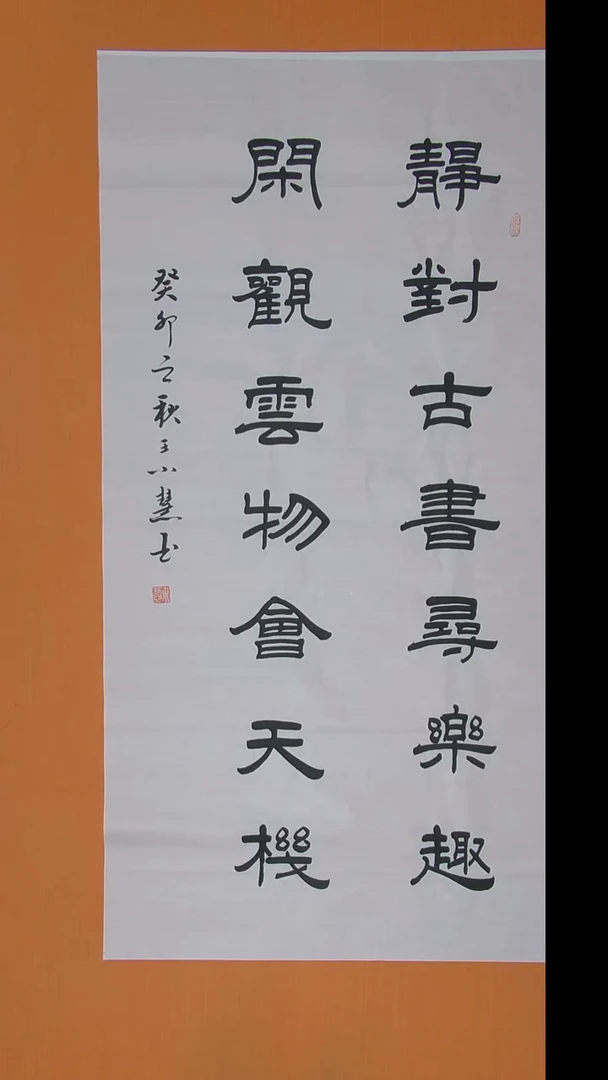 靜對古書尋樂趣
閑觀雲物會天機
癸卯之秋王小慧書